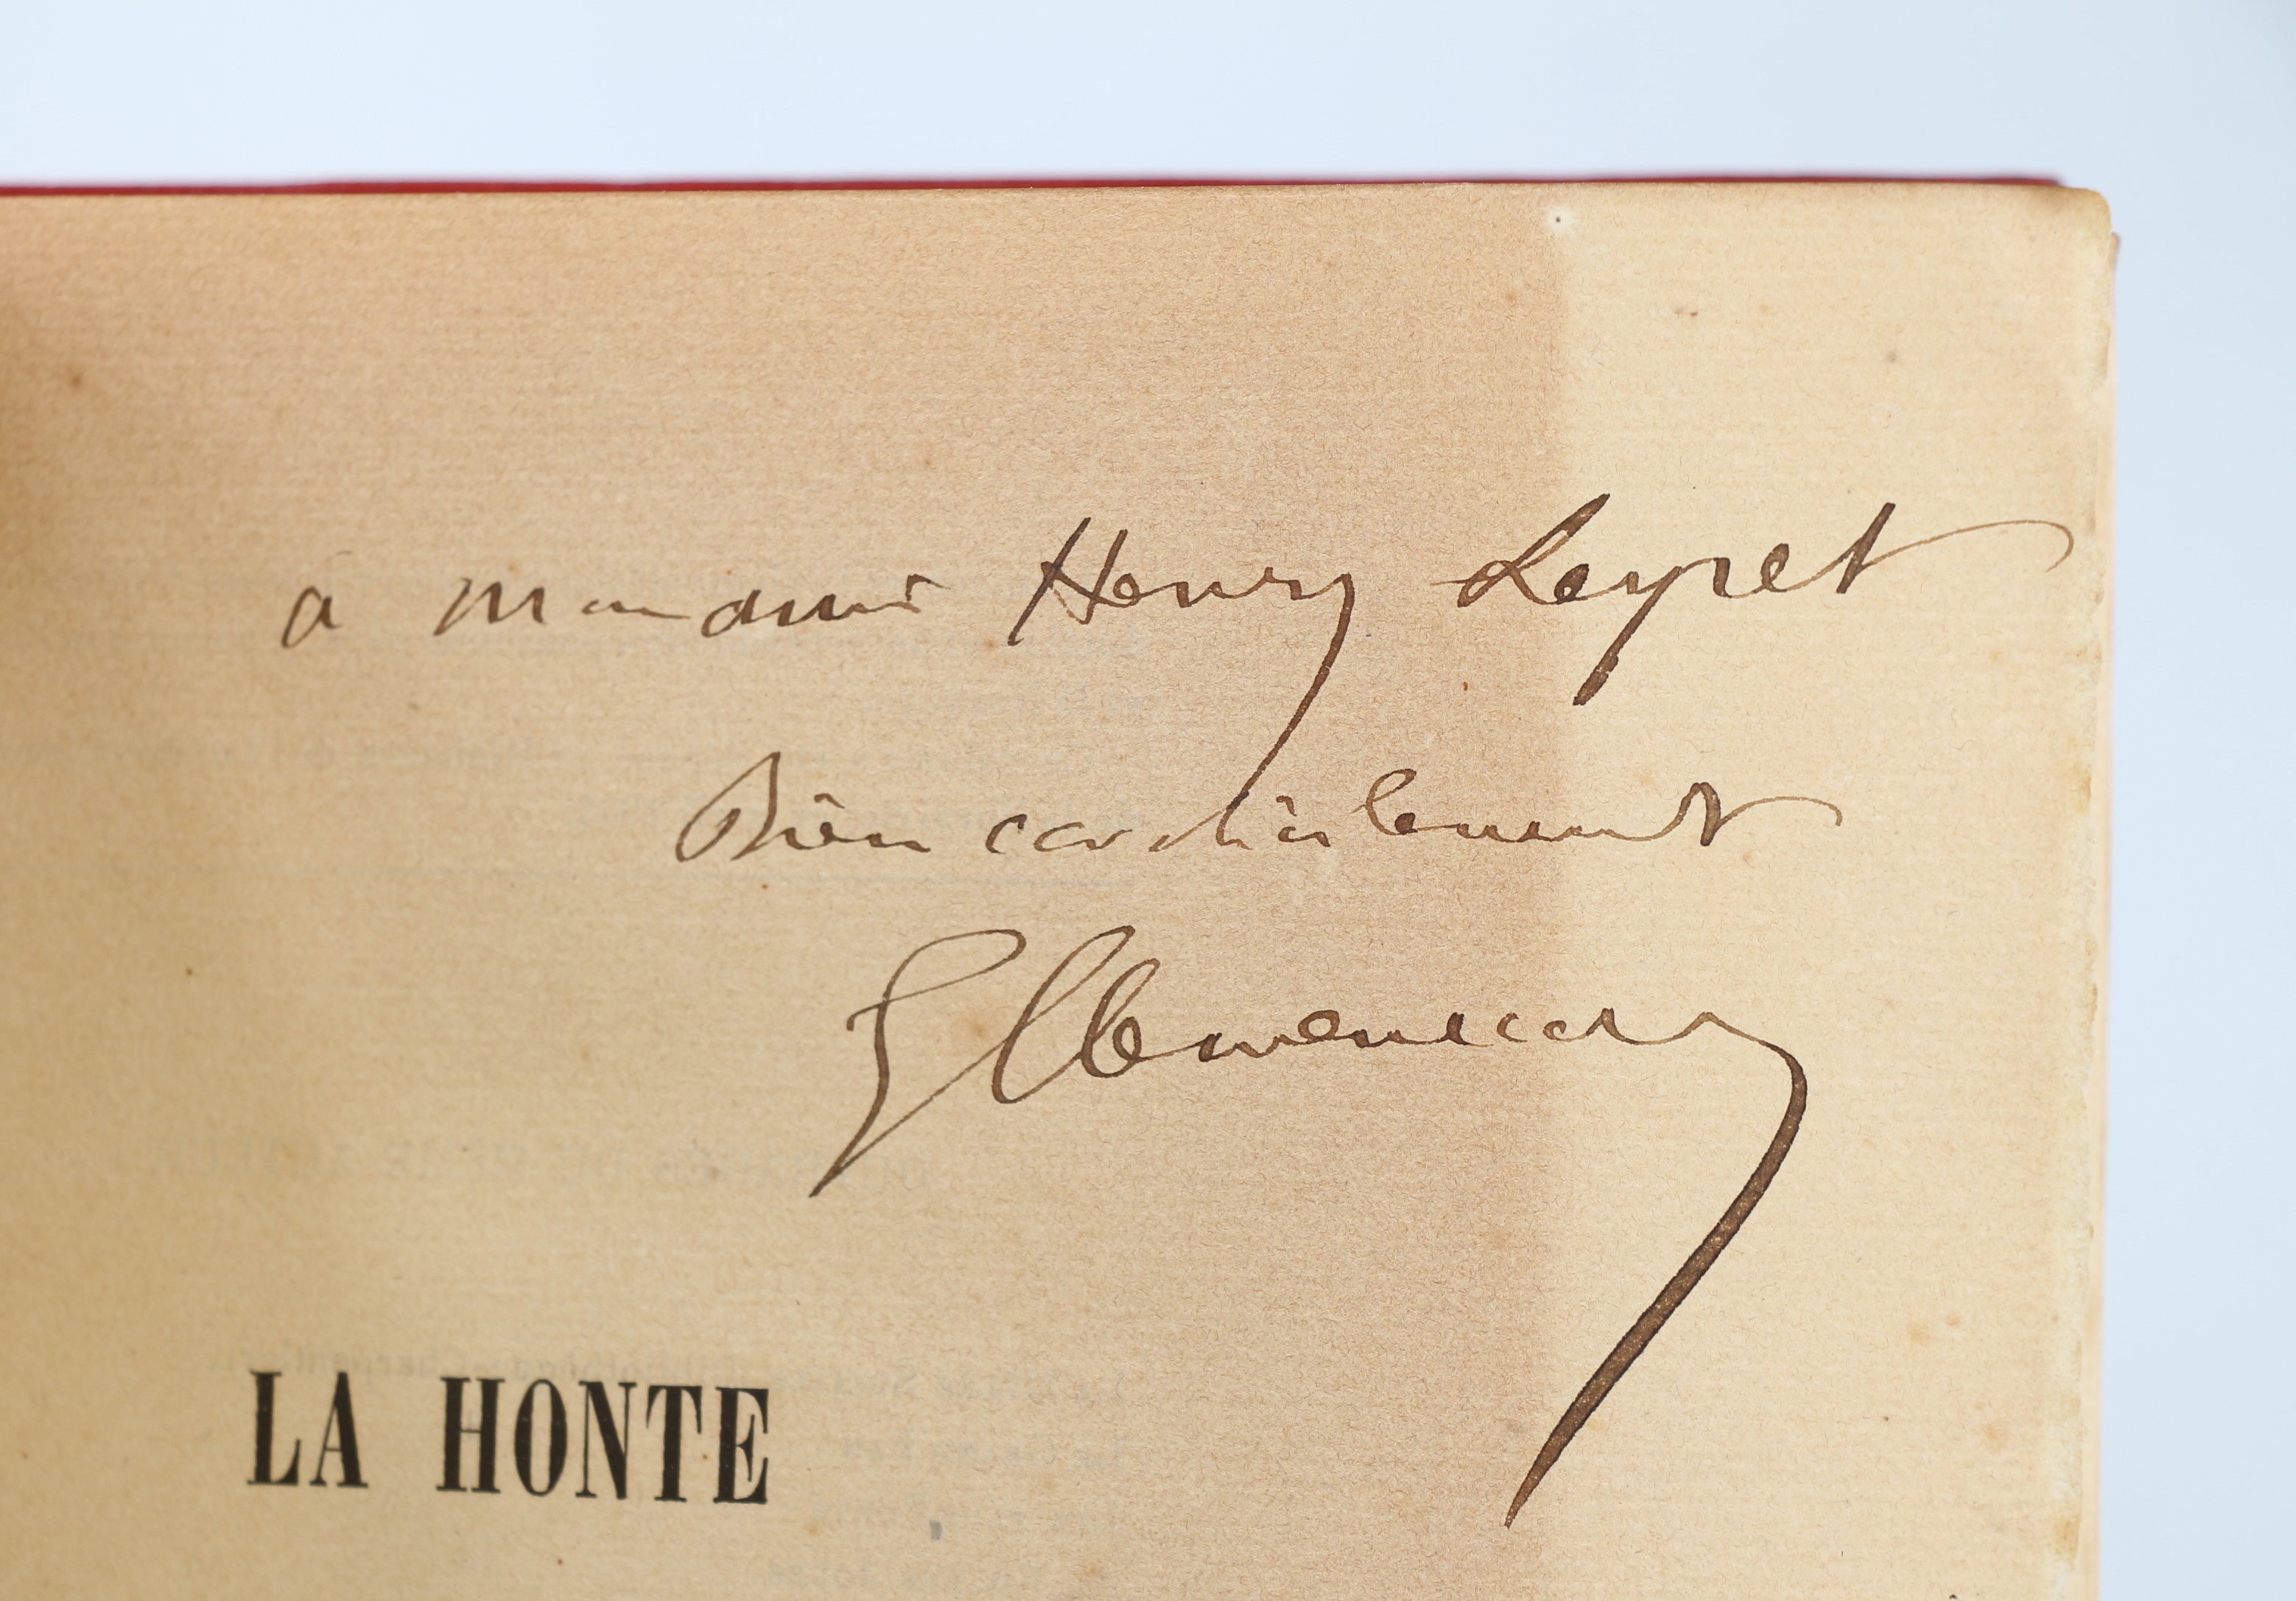 à mon ami Henry Leyret
Bien cordialement
GClemenceau
LA HONTE